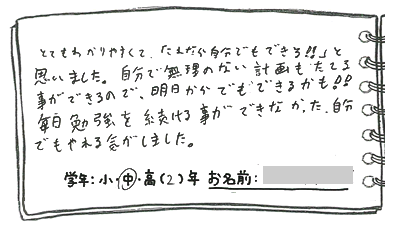 とてもわかりやすくて、「これなら自分でもできる!!」と
思いました。自分で無理のない計画もたてる
事ができるので、明日からでもできるかも!!
毎日勉強を続ける事ができなかった自分
でもやれる気がしました。
学年:小・中・高(2)年 お名前: